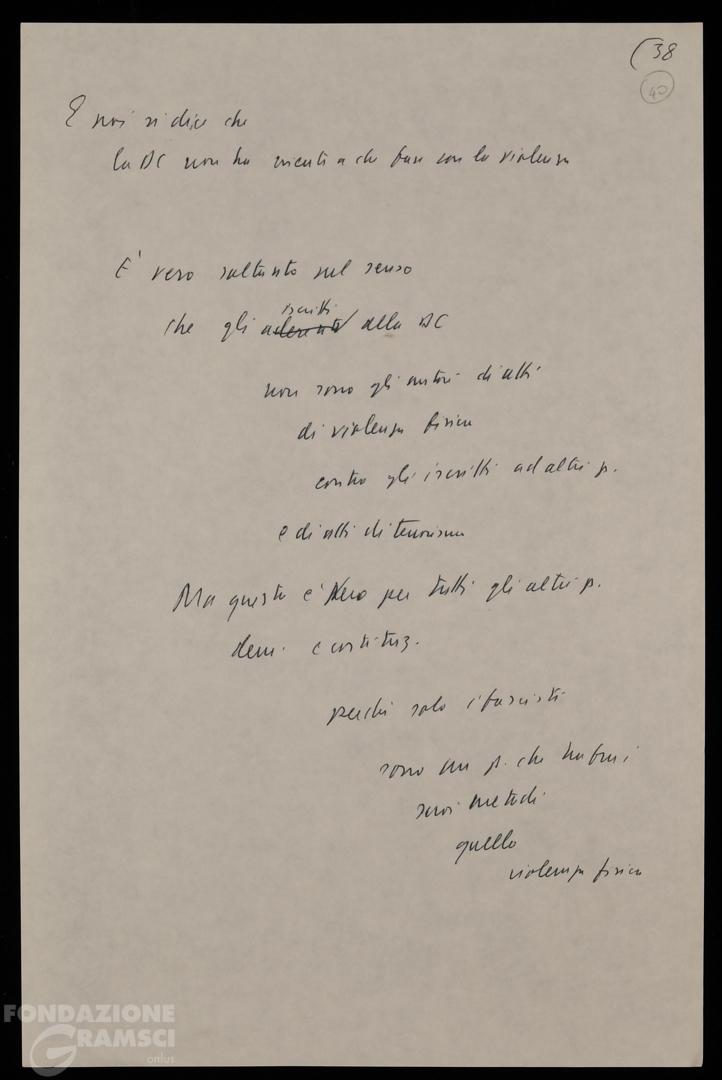 (38
40
E poi si dice che
la DC non ha niente a che fare con la violenza
E' vero soltanto nel senso
iscritti
che gli aderenti alla DC
non sono gli autori di atti
di violenza fisica
contro gli iscritti ad altri p.
e di atti di terrorismo
Ma questo e' vero per tutti gli altri p.
dem. e costituz.
perché solo i fascisti
sono un p. che ha fra i
suoi metodi
quello
violenza fisica
FONDAZIONE
GRAMSCI
onlus